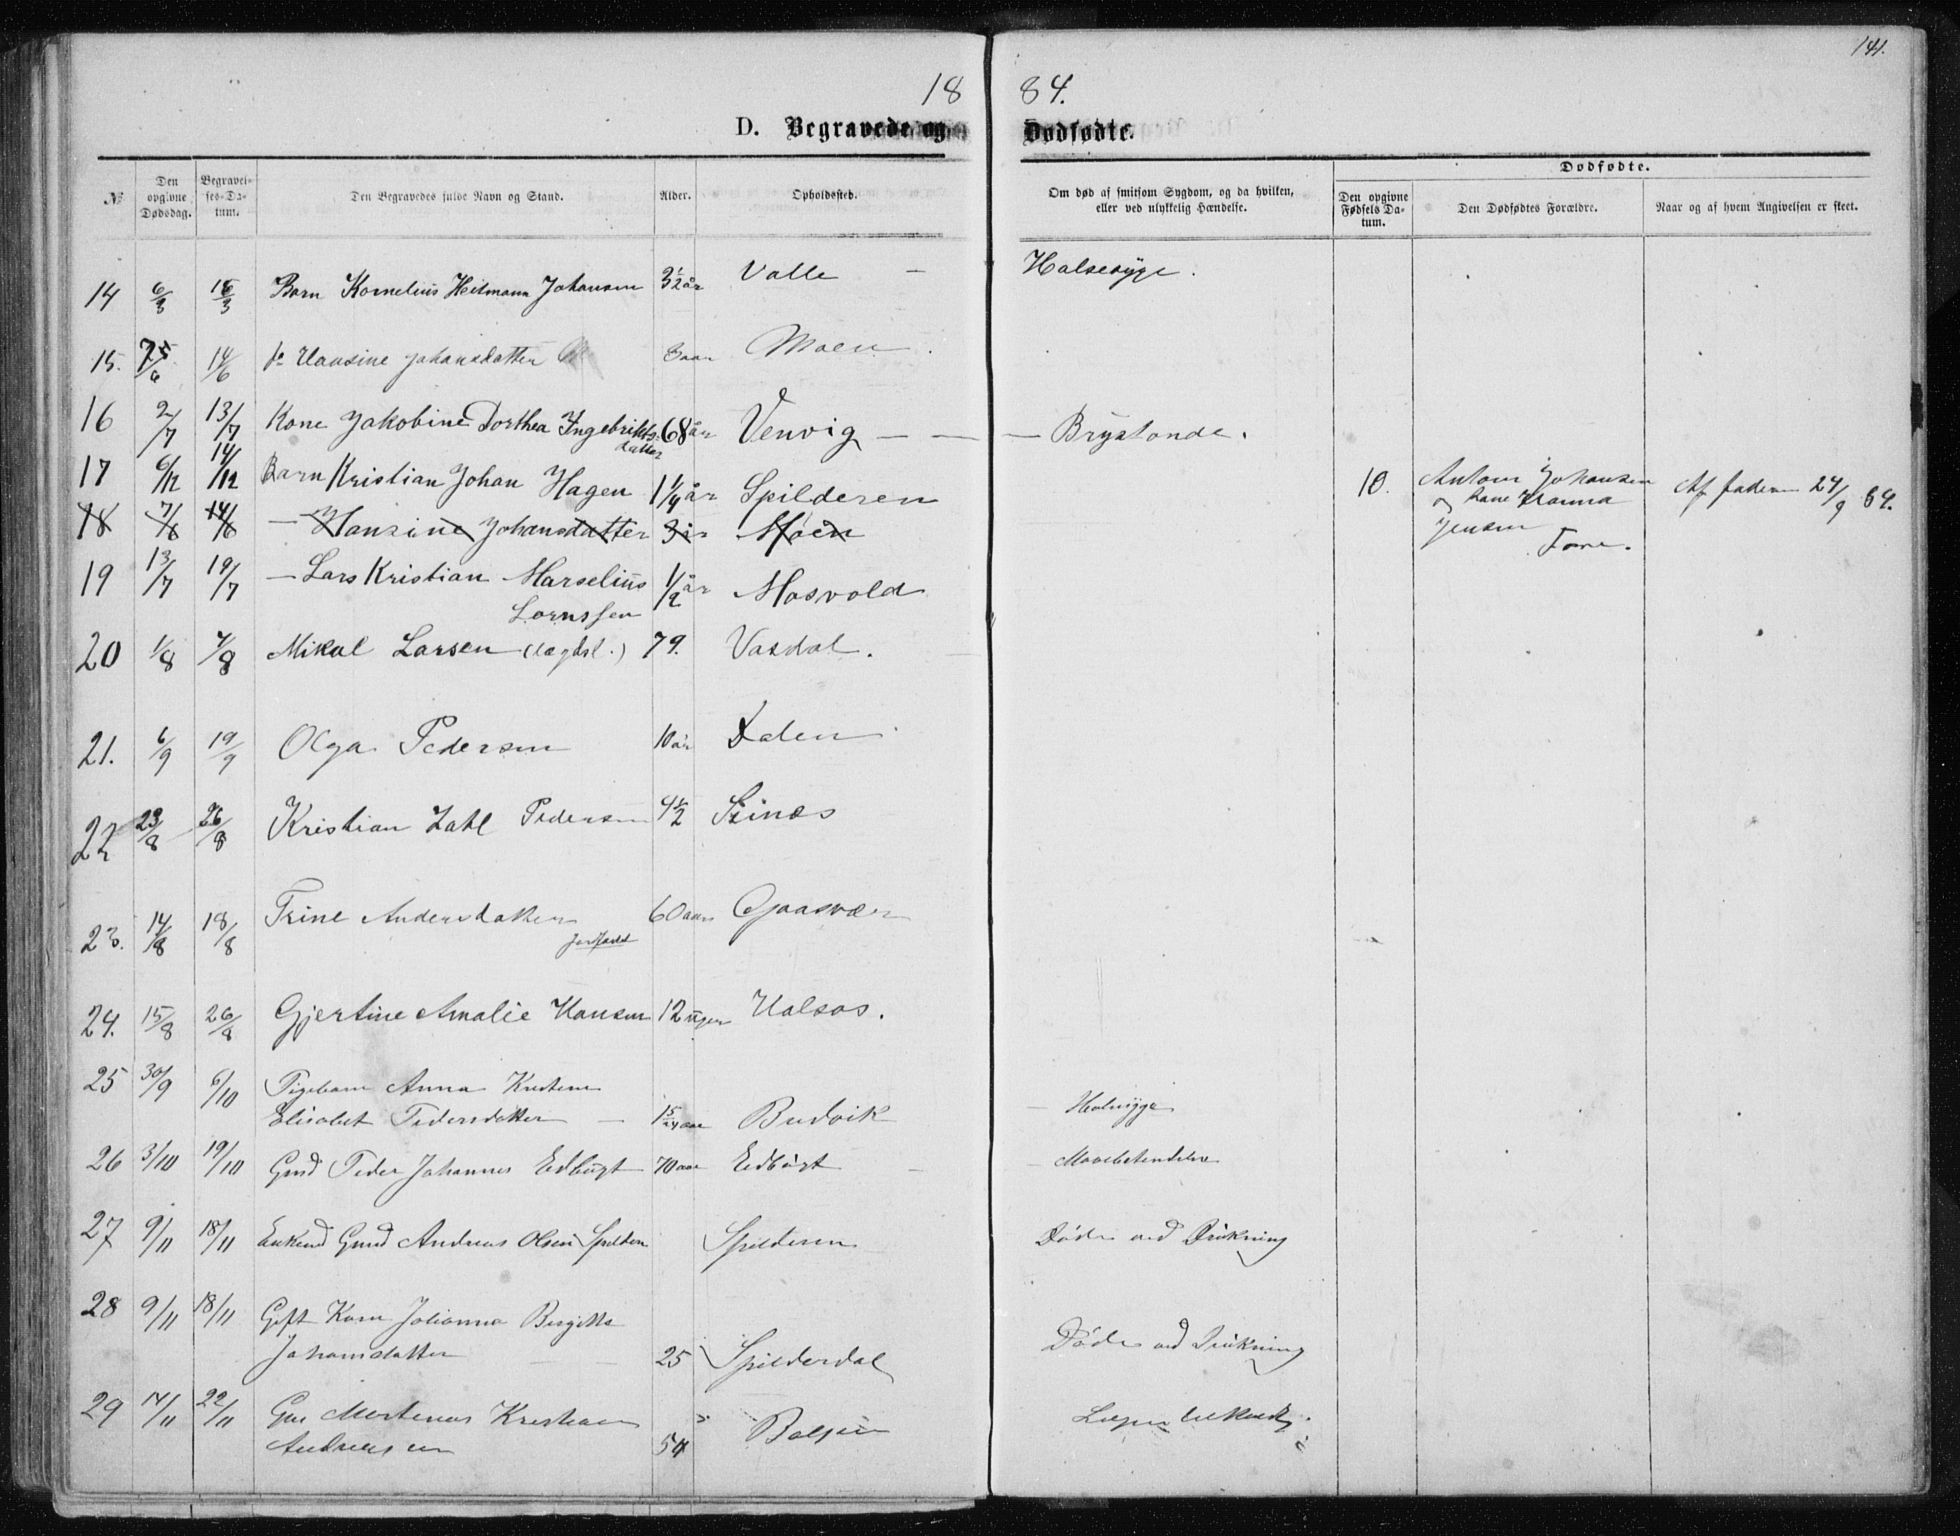 141.
1884.
D. Begravede og Dødfødte.
№ Den opgivne Dødsdag. Begravelses-Datum. Den Begravedes fulde Navn og Stand. Alder. Opholdssted. Om død af smitsom Sygdom, og da hvilken, eller ved ulykkelig Hændelse. Dødfødte. Den opgivne Fødsels Datum. Den Dødfødtes Forældre. Naar og af hvem Angivelsen er skeet.
14 6/3 Barn Kornelius Heitmann Johansen 3½ år Valle – Halsesyge.
15. 14/6 Hansine Johansdatter 3 aar Moen.
16 2/7 13/7 Kone Jakobine Dorthea Ingebrikts-
datter 68 år Venvig – – – Brystonde.
17 6/12 14/12 Barn Kristian Johan Hagen 1¼ år Spilderen
10. Anton Johansen
og Hanna
Jensen
Af faderen 24/9 84.
18 7/6 14/6 – Hansine Johansdatter 3 år Moen
19 13/7 19/7 – Lars Kristian Marselius
Lornssen ½ år Mosvold
20 1/8 7/8 Mikal Larsen (Lægdsl.) 79. Vasdal.
21. 6/9 19/9 Olga Pedersen 10 år Dalen
22 23/8 26/8 Kristian Zahl Pedersen 4½
23. 14/8 18/8 Trine Andersdatter 60 aar Gaasvær
24. 15/8 26/8 Gjertine Amalie Hansen 12 uger Halsos.
25 30/9 6/10 Pigebarn Anna Kristine
Elisabet Pedersdatter – 15/24 aar Budvik – Halssyge
26 3/10 19/10 Gmd Peder Johannes Edbugt 70 aar Edbugt – Mavebetendelse
27 9/11 18/11 Enkemd Gmd Andreas Olsen Spilderen Spilderen Døde ved Drukning
28 9/11 18/11 Gift Kone Johanna Birgitte
Johansdatter – – 25 Spilderdal Døde ved Drukning
29 14/11 22/11 Gm Mortenus Kristian
Andreassen 54